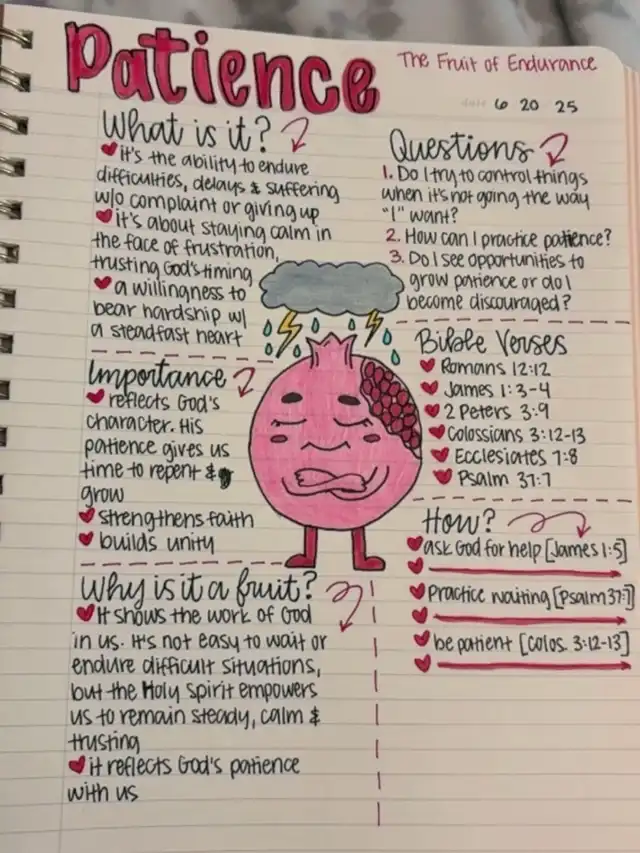 Patience
The Fruit of Endurance
date 6 20 25
What is it?
it's the ability to endure
difficulties, delays & suffering
w/o complaint or giving up
it's about staying calm in
the face of frustration,
trusting God's timing
a willingness to
bear hardship w/
a steadfast heart
Importance
reflects God's
character. His
patience gives us
time to repent &
grow
strengthens faith
builds unity
Why is it a fruit?
It shows the work of God
in us. It's not easy to wait or
endure difficult situations,
but the Holy Spirit empowers
us to remain steady, calm &
trusting
it reflects God's patience
with us
Questions
1. Do I try to control things
when it's not going the way
"I" want?
2. How can I practice patience?
3. Do I see opportunities to
grow patience or do I
become discouraged?
Bible Verses
Romans 12:12
James 1:3-4
2 Peters 3:9
Colossians 3:12-13
Ecclesiates 7:8
Psalm 37:7
How?
ask God for help [James 1:5]
Practice waiting [Psalm 37:7]
be patient [Colos. 3:12-13]